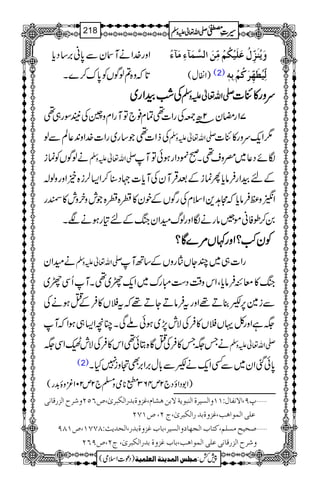 سیرتِ مصطفیٰ صلی اللہ تعالیٰ علیہ وسلم 218
وَیُنَزِّلُ عَلَیْكُمْ مِّنَ السَّمَآءِ مَآءً اور خدا نے آسمان سے پانی برسا دیا
لِّیُطَهِّرَكُمْ بِهٖ (2) (انفال) تا کہ وہ تم لوگوں کو پاک کرے۔
سرور کائنات صلی اللہ تعالیٰ علیہ وسلم کی شب بیداری
۱۷ رمضان ۲ھ جمعہ کی رات تھی تمام فوج تو آرام و چین کی نیند سو رہی تھی
مگر ایک سرور کائنات صلی اللہ تعالیٰ علیہ وسلم کی ذات تھی جو ساری رات خداوند عالم سے لو
لگائے دعا میں مصروف تھی۔ صبح نمودار ہوئی تو آپ صلی اللہ تعالیٰ علیہ وسلم نے لوگوں کو نماز
کے لئے بیدار فرمایا پھر نماز کے بعد قرآن کی آیات جہاد سنا کر ایسا لرزہ خیز اور ولولہ
انگیز وعظ فرمایا کہ مجاہدین اسلام کی رگوں کے خون کا قطرہ قطرہ جوش و خروش کا سمندر
بن کر طوفانی موجیں مارنے لگا اور لوگ میدان جنگ کے لئے تیار ہونے لگے۔
کون کب؟ اور کہاں مرے گا؟
رات ہی میں چند جاں نثاروں کے ساتھ آپ صلی اللہ تعالیٰ علیہ وسلم نے میدان
جنگ کا معائنہ فرمایا، اس وقت دست مبارک میں ایک چھڑی تھی۔ آپ اُسی چھڑی
سے زمین پر لکیر بناتے تھے اور یہ فرماتے جاتے تھے کہ یہ فلاں کافر کے قتل ہونے کی
جگہ ہے اور کل یہاں فلاں کافر کی لاش پڑی ہوئی ملے گی۔ چنانچہ ایسا ہی ہوا کہ آپ
صلی اللہ تعالیٰ علیہ وسلم نے جس جگہ جس کافر کی قتل گاہ بتائی تھی اس کافر کی لاش ٹھیک اسی جگہ
پائی گئی ان میں سے کسی ایک نے لکیر سے بال برابر بھی تجاوز نہیں کیا۔ (2)
(ابوداؤد ج۲ ص۳۶۴ مطبع نامی و مسلم ج۲ ص۱۰۲ غزوۂ بدر)
......پ۹، الانفال:۱۱ والسیرۃ النبویۃ لابن ھشام، غزوۃ بدر الکبری، ص۲۵۶ وشرح الزرقانی
علی المواھب، غزوۃ بدر الکبری، ج۲، ص۲۷۱
......صحیح مسلم، کتاب الجھاد والسیر، باب غزوۃ بدر، الحدیث:۱۷۷۸، ص۹۸۱
وشرح الزرقانی علی المواھب، باب غزوۃ بدر الکبری، ج۲، ص۲۶۹
پیش کش: مجلس المدینۃ العلمیۃ (دعوتِ اسلامی)